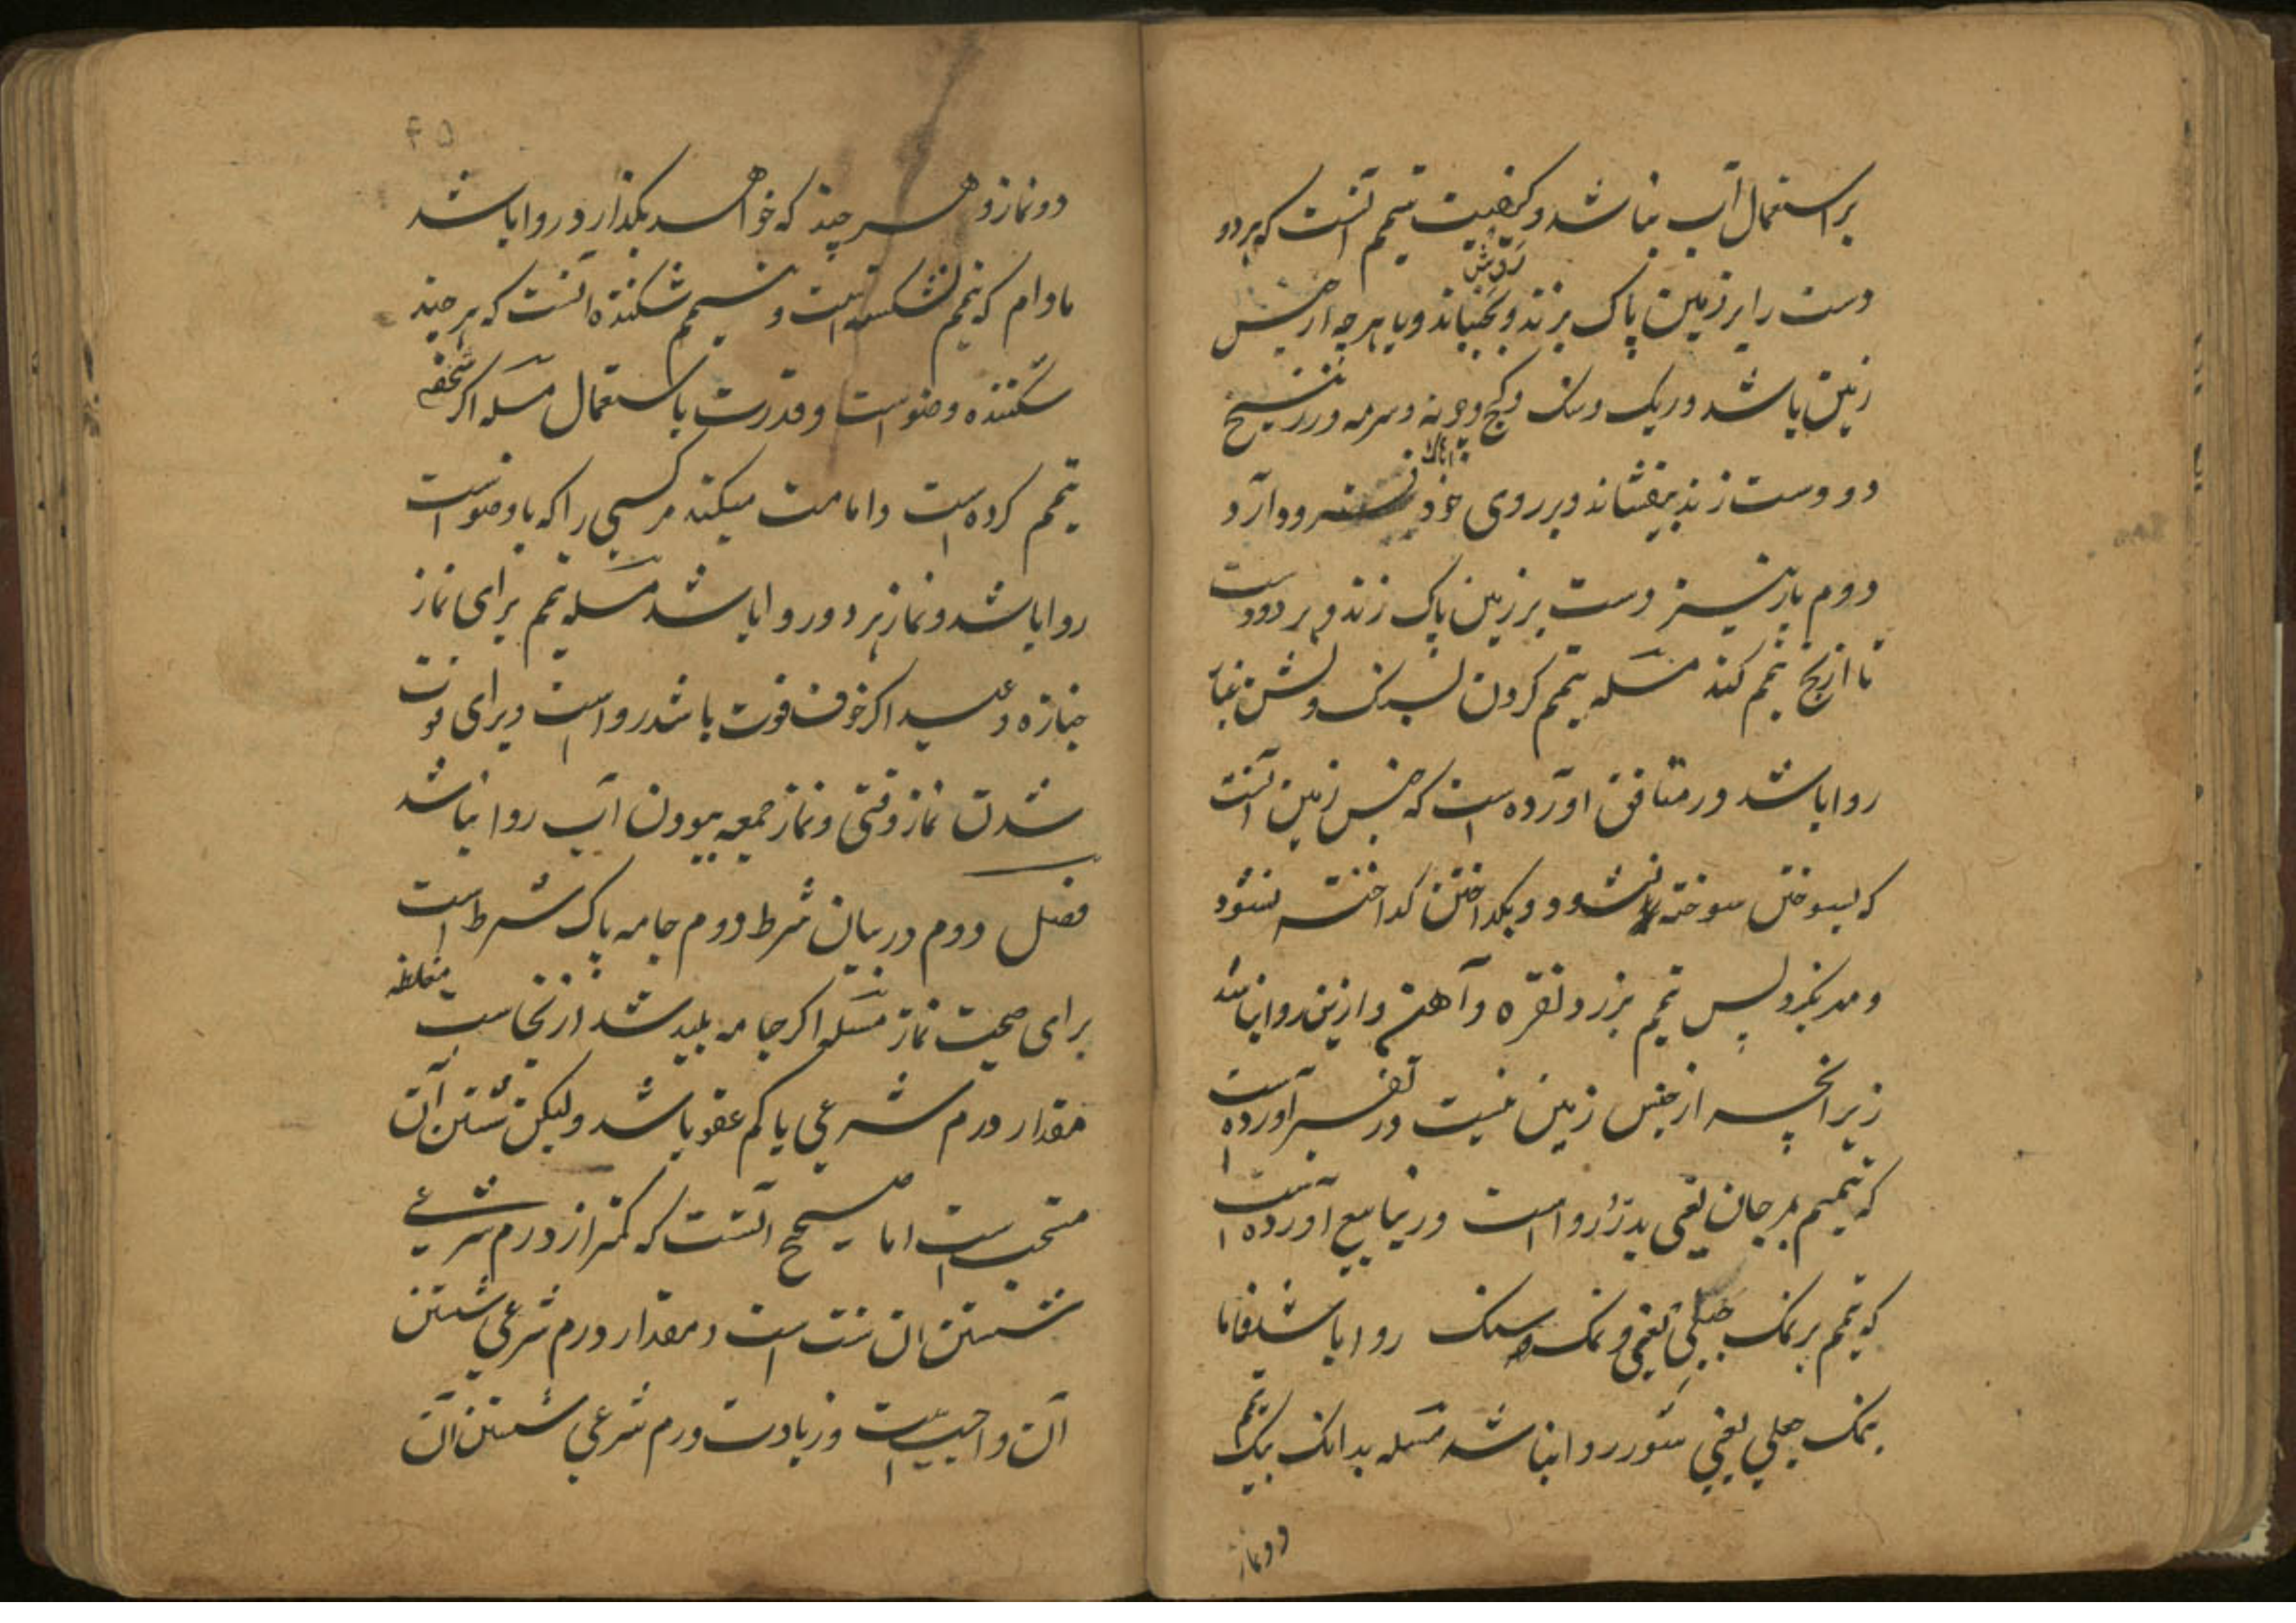 بر استعمال آب نباشد و کیفیت تیمم آنست که هر دو
دست را بر زمین پاک بزند و بجنباند و با هرچه از جنس
زمین باشد و ریک و سنک و کج و چونه و سرمه و زرنیخ
دو دست زند بیفشاند و بر روی خود فرود آرد
دوم بار نیز دست بر زمین پاک زند و بر دو دست
تا ارنج تیمم کند مسله تیمم کردن بسنک و لش بی غبار
روا باشد و در منافق آورده است که جنس زمین آنست
که بسوختن سوخته نشود و بکداختن کداخته نشود
پس تیمم بزر و نقره و آهن و ارزیز روا نباشد
زیرانچه از جنس زمین نیست و در تفسیر آورده است
که تیمم بمرجان یعنی بدرّ روا است و در ینابیع آورده است
که تیمم بر نمک جبلی یعنی نمک سنک روا باشد فاما
بنمک یعنی شور روا نباشد مسله بدانک بیک تیمم
دو نماز
۴۵
دو نماز و هر چند که خواهد بکذارد روا باشد
مادام که تیمم نشکسته است و تیمم شکننده آنست که هر چند
شکننده وضو است و قدرت باستعمال مسله اکر شخصی
تیمم کرده است و امامت میکند مر کسی را که با وضو است
روا باشد و نماز هر دو روا باشد مسله تیمم برای نماز
جنازه و عید اکر خوف فوت باشد روا است و برای فوت
شدن نماز وقتی و نماز جمعه ببودن آب روا نباشد
فصل دوم در بیان شرط دوم جامه پاک شرط است
برای صحت نماز مسله اکر جامه پلید شد از نجاست مغلظه
مقدار درم شرعی یا کم عفو باشد ولیکن شستن آن
مستحب است اما صحیح آنست که کمتر از درم شرعی
شستن ان سنت است و مقدار درم شرعی شستن
آن واجبست و زیادت درم شرعی شستن آن